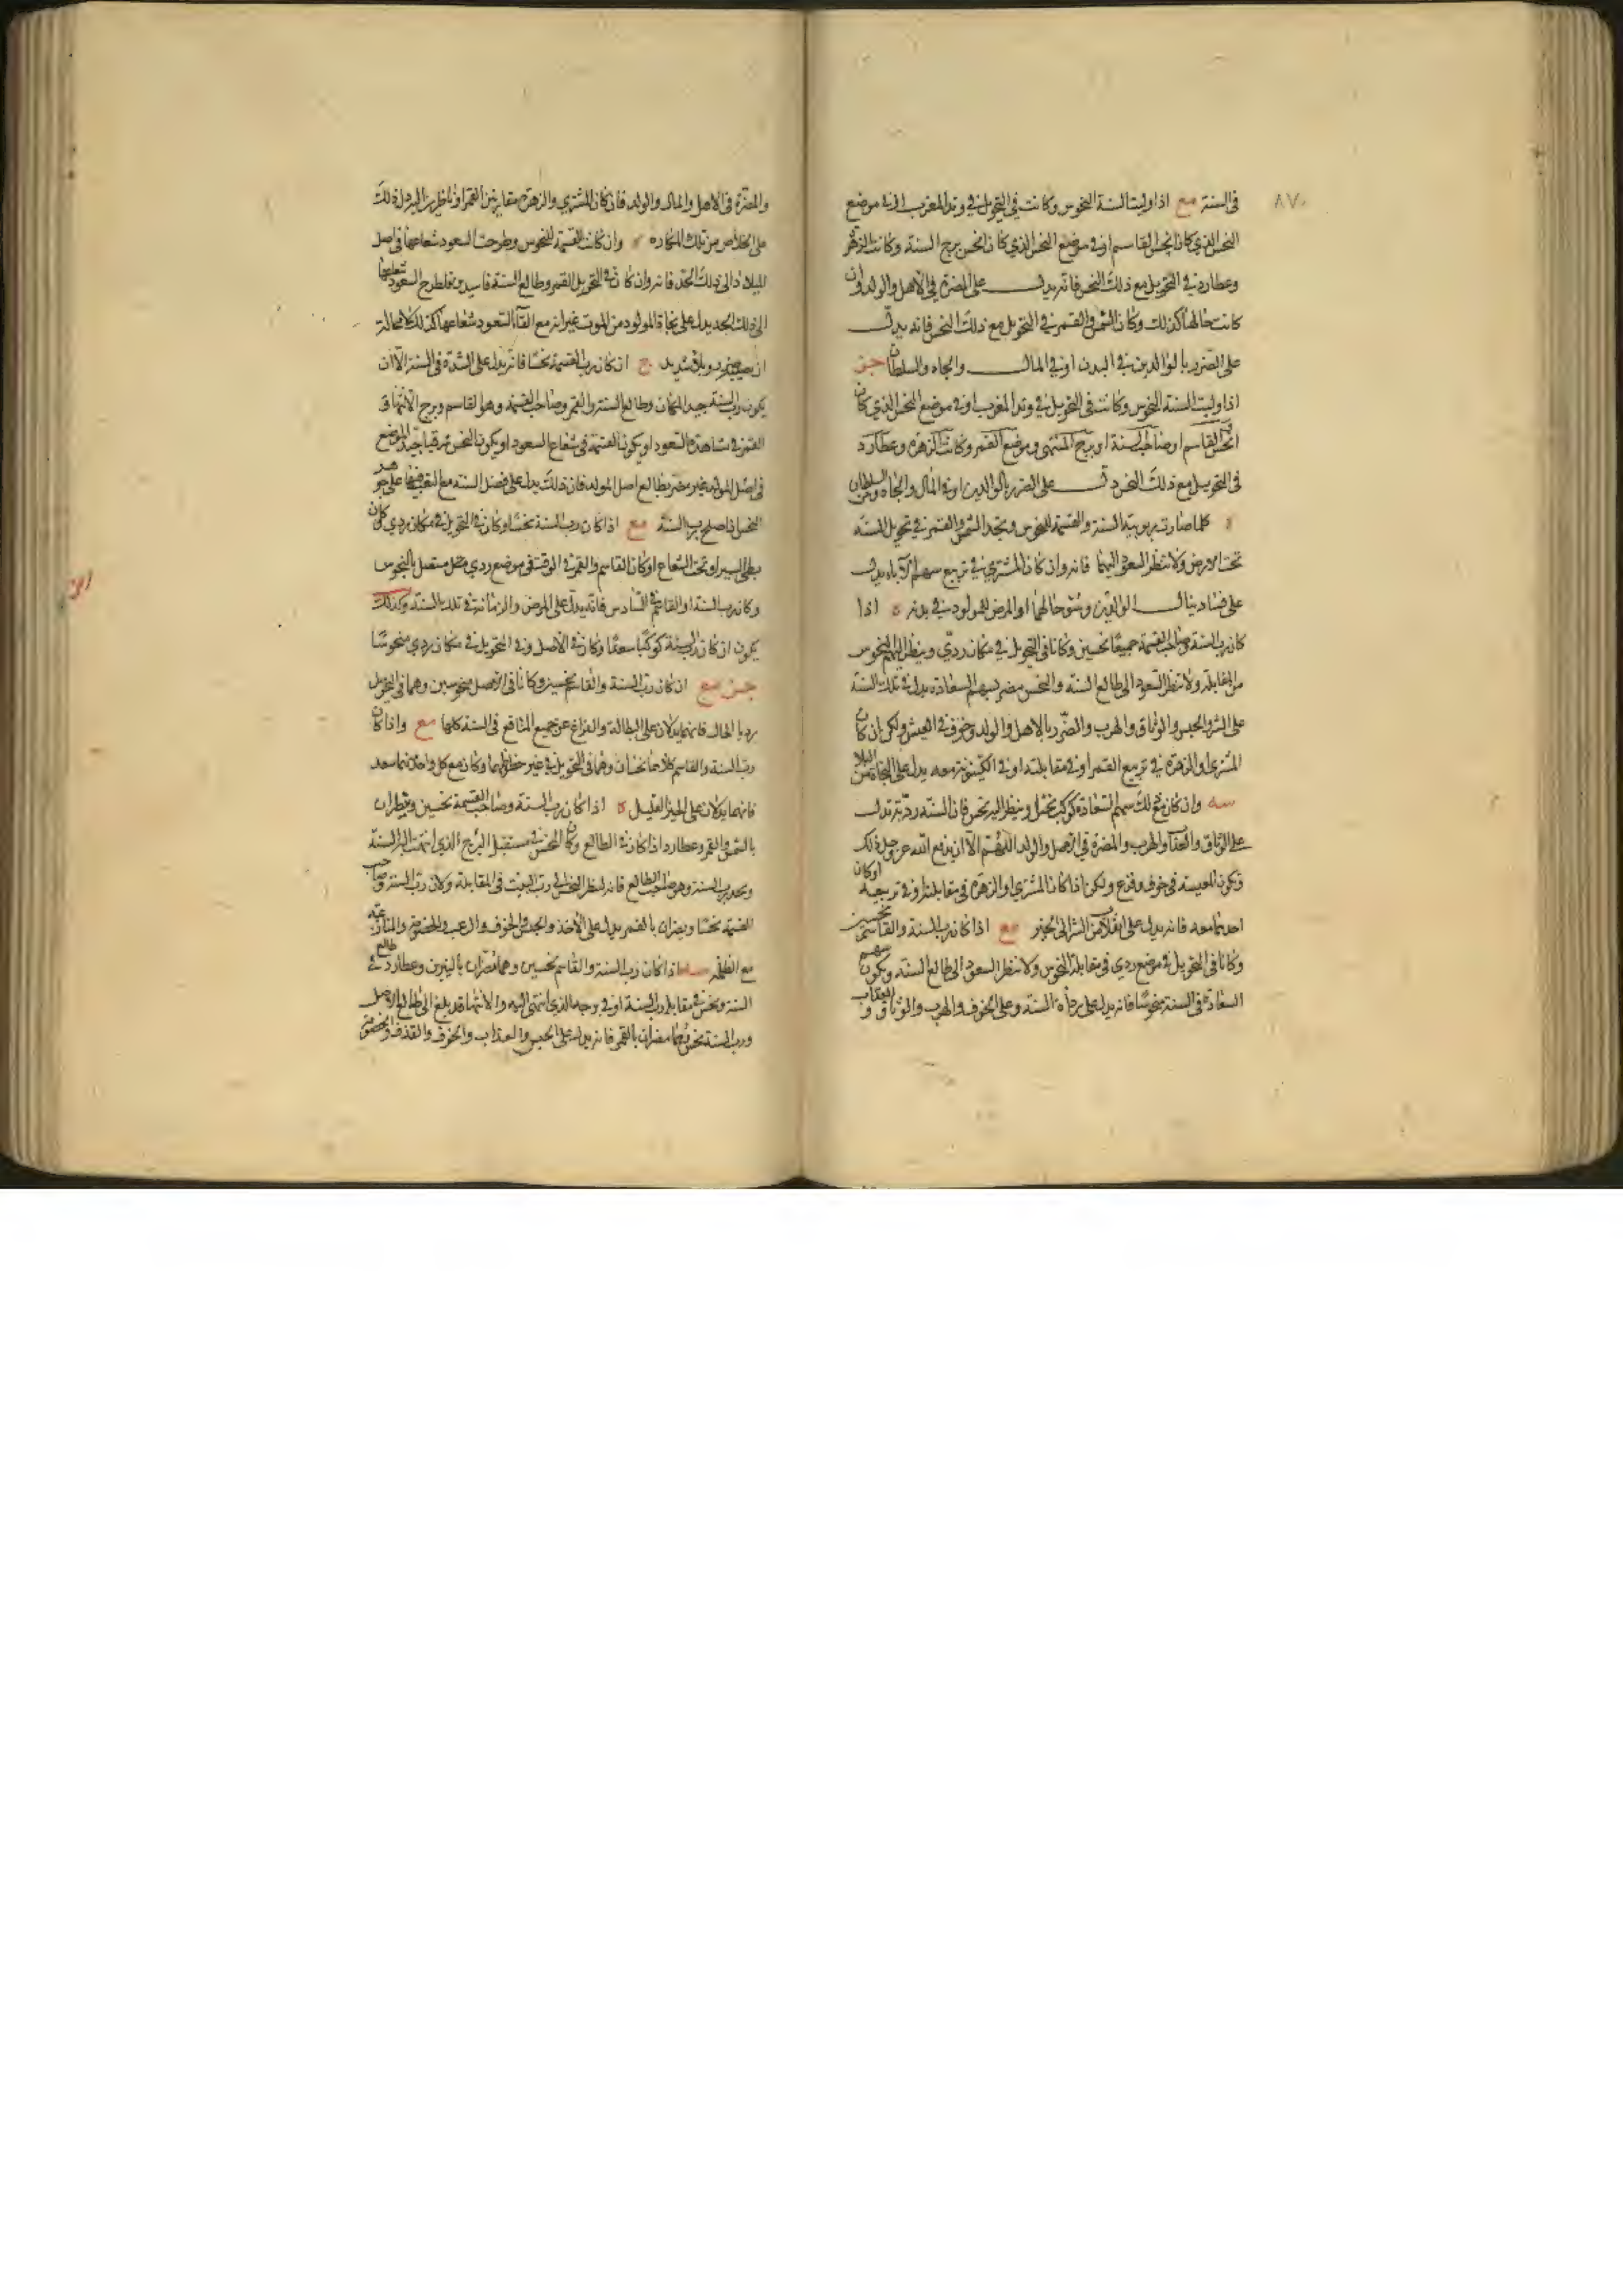 ٨٧٠
فى السنة مع اذا وليت السنة النحوس وكانت فى التحويل فى وتد المغرب او فى موضع
النحس الذى كان انحس القاسم او فى موضع النحس الذى كان انحس برج السنة وكانت الزهرة
وعطارد فى التحويل مع ذلك النحس فانه يدل على المضرة فى الاهل والولد وان
كانت حالها كذلك وكان الشمس والقمر فى التحويل مع ذلك النحس فانه يدل
على الضرر بالوالدين فى البدن او فى المال والجاه والسلطان جز
اذا وليت السنة النحوس وكانت فى التحويل فى وتد المغرب او فى موضع النحس الذى كان
انحس القاسم او صاحب السنة او برج المنتهى وموضع القمر وكانت الزهرة وعطارد
فى التحويل مع ذلك النحس دل على الضرر بالوالدين او فى المال والجاه والسلطان
كلما صارت ربوبية السنة والقسمة للنحوس وتجد الشمس والقمر فى تحويل السنة
تحت الارض ولا تنظر السعود اليهما فانه وان كان المشترى فى تربيع سهم الآباء يدل
على فساد حال الوالدين وسوء حالهما او المرض للمولود فى بدنه ه اذا
كان رب السنة وصاحب القسمة جميعا نحسين وكانا فى التحويل فى مكان ردى وينظر اليهم النحوس
من المقابلة ولا تنظر السعود الى طالع السنة والنحس مضر بسهم السعادة يدل فى تلك السنة
على الشر والحبس والوثاق والهرب والضرر بالاهل والولد وخوف فى العيش ولكن ان كان
المشترى او الزهرة فى تربيع القمر او فى مقابلته او فى الكينونة معه يدل على النجاة من البلاء
سه وان كان مع ذلك سهم السعادة كوكب نحس او ينظر اليه نحس فان السنة ردية تدل
على الوثاق والعذاب والهرب والمضرة فى الاصل والولد اللهم الا ان يدفع الله عز وجل ذلك
وتكون المعيشة فى خوف وفزع ولكن اذا كان المشترى او الزهرة فى مقابلته او فى تربيعه او كان
احدهما معه فانه يدل على انقلاب من الشر الى الخير مع اذا كان رب السنة والقاسم نحسين
وكانا فى التحويل فى موضع ردى فى مقابلة النحوس ولا تنظر السعود الى طالع السنة ويكون سهم
السعادة فى السنة منحوسا فانه يدل على رداءة السنة وعلى الخوف والهرب والوثاق والعذاب
والمضرة فى الاهل والمال والولد فان كان المشترى والزهرة مقارنين القمر او ناظرين اليه دل ذلك
على الخلاص من تلك المكاره وان كانت القسمة للنحوس وطرحت السعود شعاعها فى اصل
الميلاد الى ذلك الحد فانه وان كان فى التحويل القمر وطالع السنة فاسدين فطرح السعود شعاعها
الى ذلك الحد يدل على نجاة المولود من الموت غير انه مع القاء السعود شعاعها كذلك لا محالة
ان يصيبه بلاء شديد ج ان كان رب القسمة نحسا فانه يدل على الشدة فى السنة الا ان
يكون رب السنة جيد المكان وطالع السنة والقمر وصاحب القسمة وهو القاسم وبرج الانتهاء
القمر فى مشاهدة السعود او يكون القسمة فى شعاع السعود او يكون النحس شرقيا جيد الموضع
فى اصل المولد غير مضر بطالع اصل المولد فان ذلك يدل على فضل السنة مع التعب
النحس اذا صلح برب السنة مع اذا كان رب السنة نحسا وكان فى التحويل فى مكان ردى كان
بطى السير او تحت الشعاع او كان القاسم والقمر فى الوقت فى موضع ردى متصل بالنحوس
وكان رب السنة او القاسم فى السادس فانه يدل على المرض والزمانة فى تلك السنة وكذلك
يكون ان كان رب السنة كوكبا سعدا وكان فى الاصل وفى التحويل فى مكان ردى منحوسا
جز مع ان كان رب السنة والقاسم نحسين وكانا فى الاصل منحوسين وهما فى التحويل
رديا الحال فانهما يدلان على البطالة والفراغ عن جميع المنافع فى السنة كلها مع واذا كان
رب السنة والقاسم كلاهما نحسان وهما فى التحويل فى غير حظوظهما وكان مع كل واحد منهما سعد
فانهما يدلان على الخير القليل ه اذا كان رب السنة وصاحب القسمة نحسين وينظران
بالشمس والقمر وعطارد اذا كان فى الطالع وكان النحس فى مستقبل البرج الذى انتهت اليه السنة
وتجد رب السنة وهو صاحب الطالع فانه لنظر النحس الى رب البيت فى المقابلة ولان رب السنة وصاحب
القسمة نحسا ويضران بالقمر يدل على الاخذ والحبس والخوف والرعب والخصومة والمنازعة
مع الظلمة اذا كان رب السنة والقاسم نحسين وهما مضران بالنيرين وعطارد فى طالع
السنة ونحس فى مقابلة رب السنة او فى برجه الذى انتهى اليه والانتهاء قد بلغ الى طالع الاصل
ورب السنة نحس وهما مضران بالقمر فانه يدل على الحبس والعذاب والخوف والقذف والخصومة